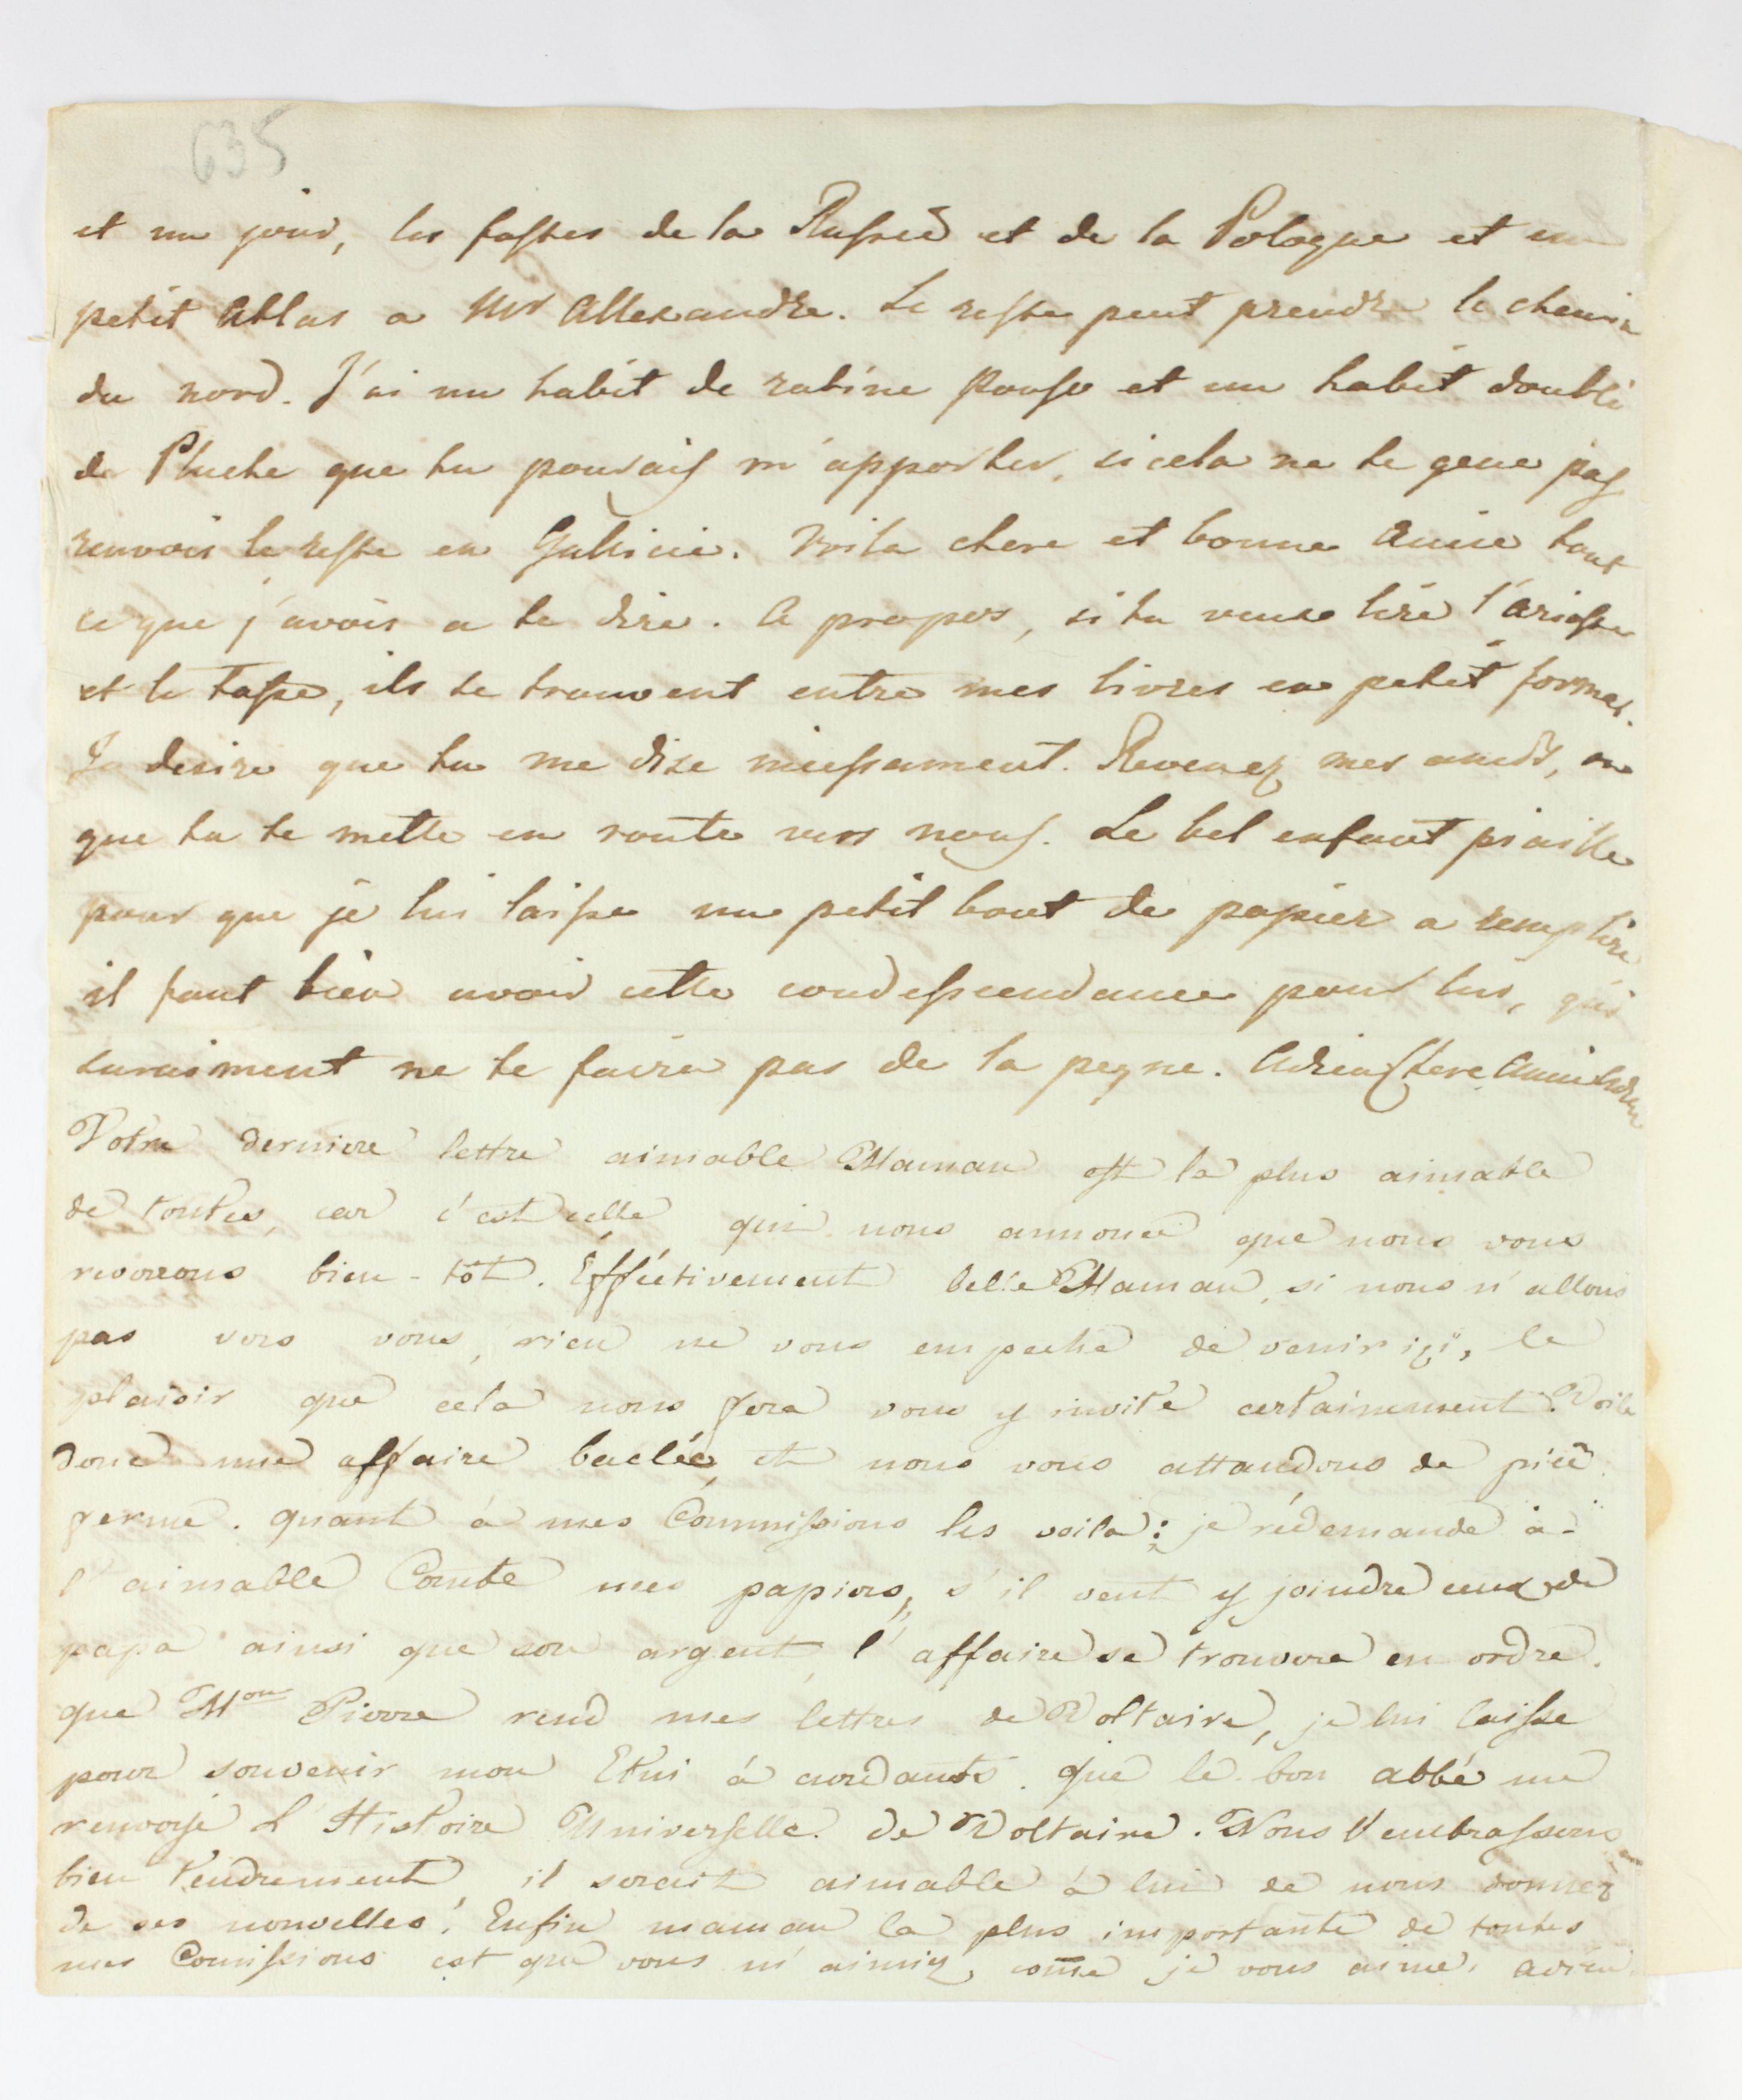 635
et un jour, les fastes de la Russie et de la Pologne et un
petit Atlas a Mr Allexandre. Le reste peut prendre le chemin
du nord. J'ai un habit de ratine et un habit doublé
de Pluche que tu pourais m'apporter, si cela ne te gene pas
renvois le reste en Gallicie. Voila chere et bonne Amie tout
ce que j'avois a te dire. A propos, si tu veux lire l'arioste
et le Tasse, ils se trouvent entre mes livres en petit format.
Je desire que tu me dise incessament. Revenez mes amis, ou
que tu te mette en route vers nous. Le bel enfant piaille
pour que je lui laisse un petit bout de papier a remplire
il faut bien avoir cette condesscendance pour lui, qui
suraiment ne te faira pas de la peyne. Adieu Chere Amie Adieu
Votre derniere lettre aimable Maman est la plus aimable
de toutes, car c'est celle qui nous annonce que nous vous
reverrons bien-tôt. Efféctivement belle Maman, si nous n'allons
pas vers vous, rien ne vous empeche de venir içi, le
plaisir que cela nous fera vous y invite certainement. Voila
donc une affaire baclée, et nous vous attandons de pièd
ferme. quant à mes Commissions les voila: je rédemande à
l'aimable Comte mes papiers, s'il veut y joindre ceux de
papa ainsi que son argent, l'affaire se trouvera en ordre.
que Mon Pierre rend mes lettres de Voltaire, je lui laisse
pour souvenir mon Etui à curdants. que le bon abbé me
renvoye L'Histoire Universelle de Voltaire. Nous l'embrassons
bien tendrement, il serait aimable à lui de nous donner
de ses nouvelles! Enfin maman la plus importante de toutes
mes Comissions est que vous m'aimiez, come je vous aime. adieu